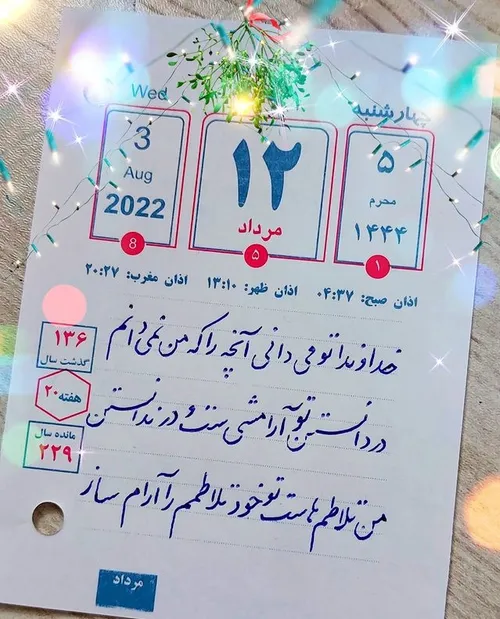 Wed
چهارشنبه
3
Aug
2022
8
۱۲
مرداد
۵
۵
محرم
۱۴۴۴
۱
اذان صبح: ۰۴:۳۷ اذان ظهر: ۱۳:۱۰ اذان مغرب: ۲۰:۲۷
خداوندا تو می دانی آنچه را که من نمی دانم
۱۳۶
گذشت سال
در دانستن تو آرامشی ست و در ندانستن
هفته ۲۰
مانده سال
۲۲۹
من تلاطم هاست تو خود تلاطمم را آرام ساز
مرداد